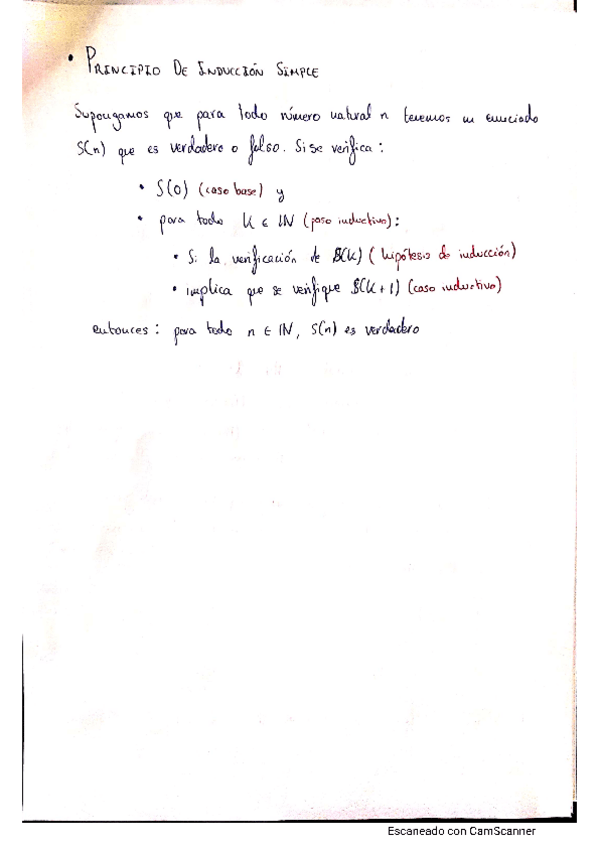 • PRINCIPIO DE INDUCCIÓN SIMPLE
Supongamos que para todo número natural n tenemos un enunciado
S(n) que es verdadero o falso. Si se verifica:
• S(0) (caso base) y
• para todo K ∈ IN (paso inductivo):
• Si la verificación de S(K) (hipótesis de inducción)
• implica que se verifique S(K+1) (caso inductivo)
entonces: para todo n ∈ IN, S(n) es verdadero
Escaneado con CamScanner